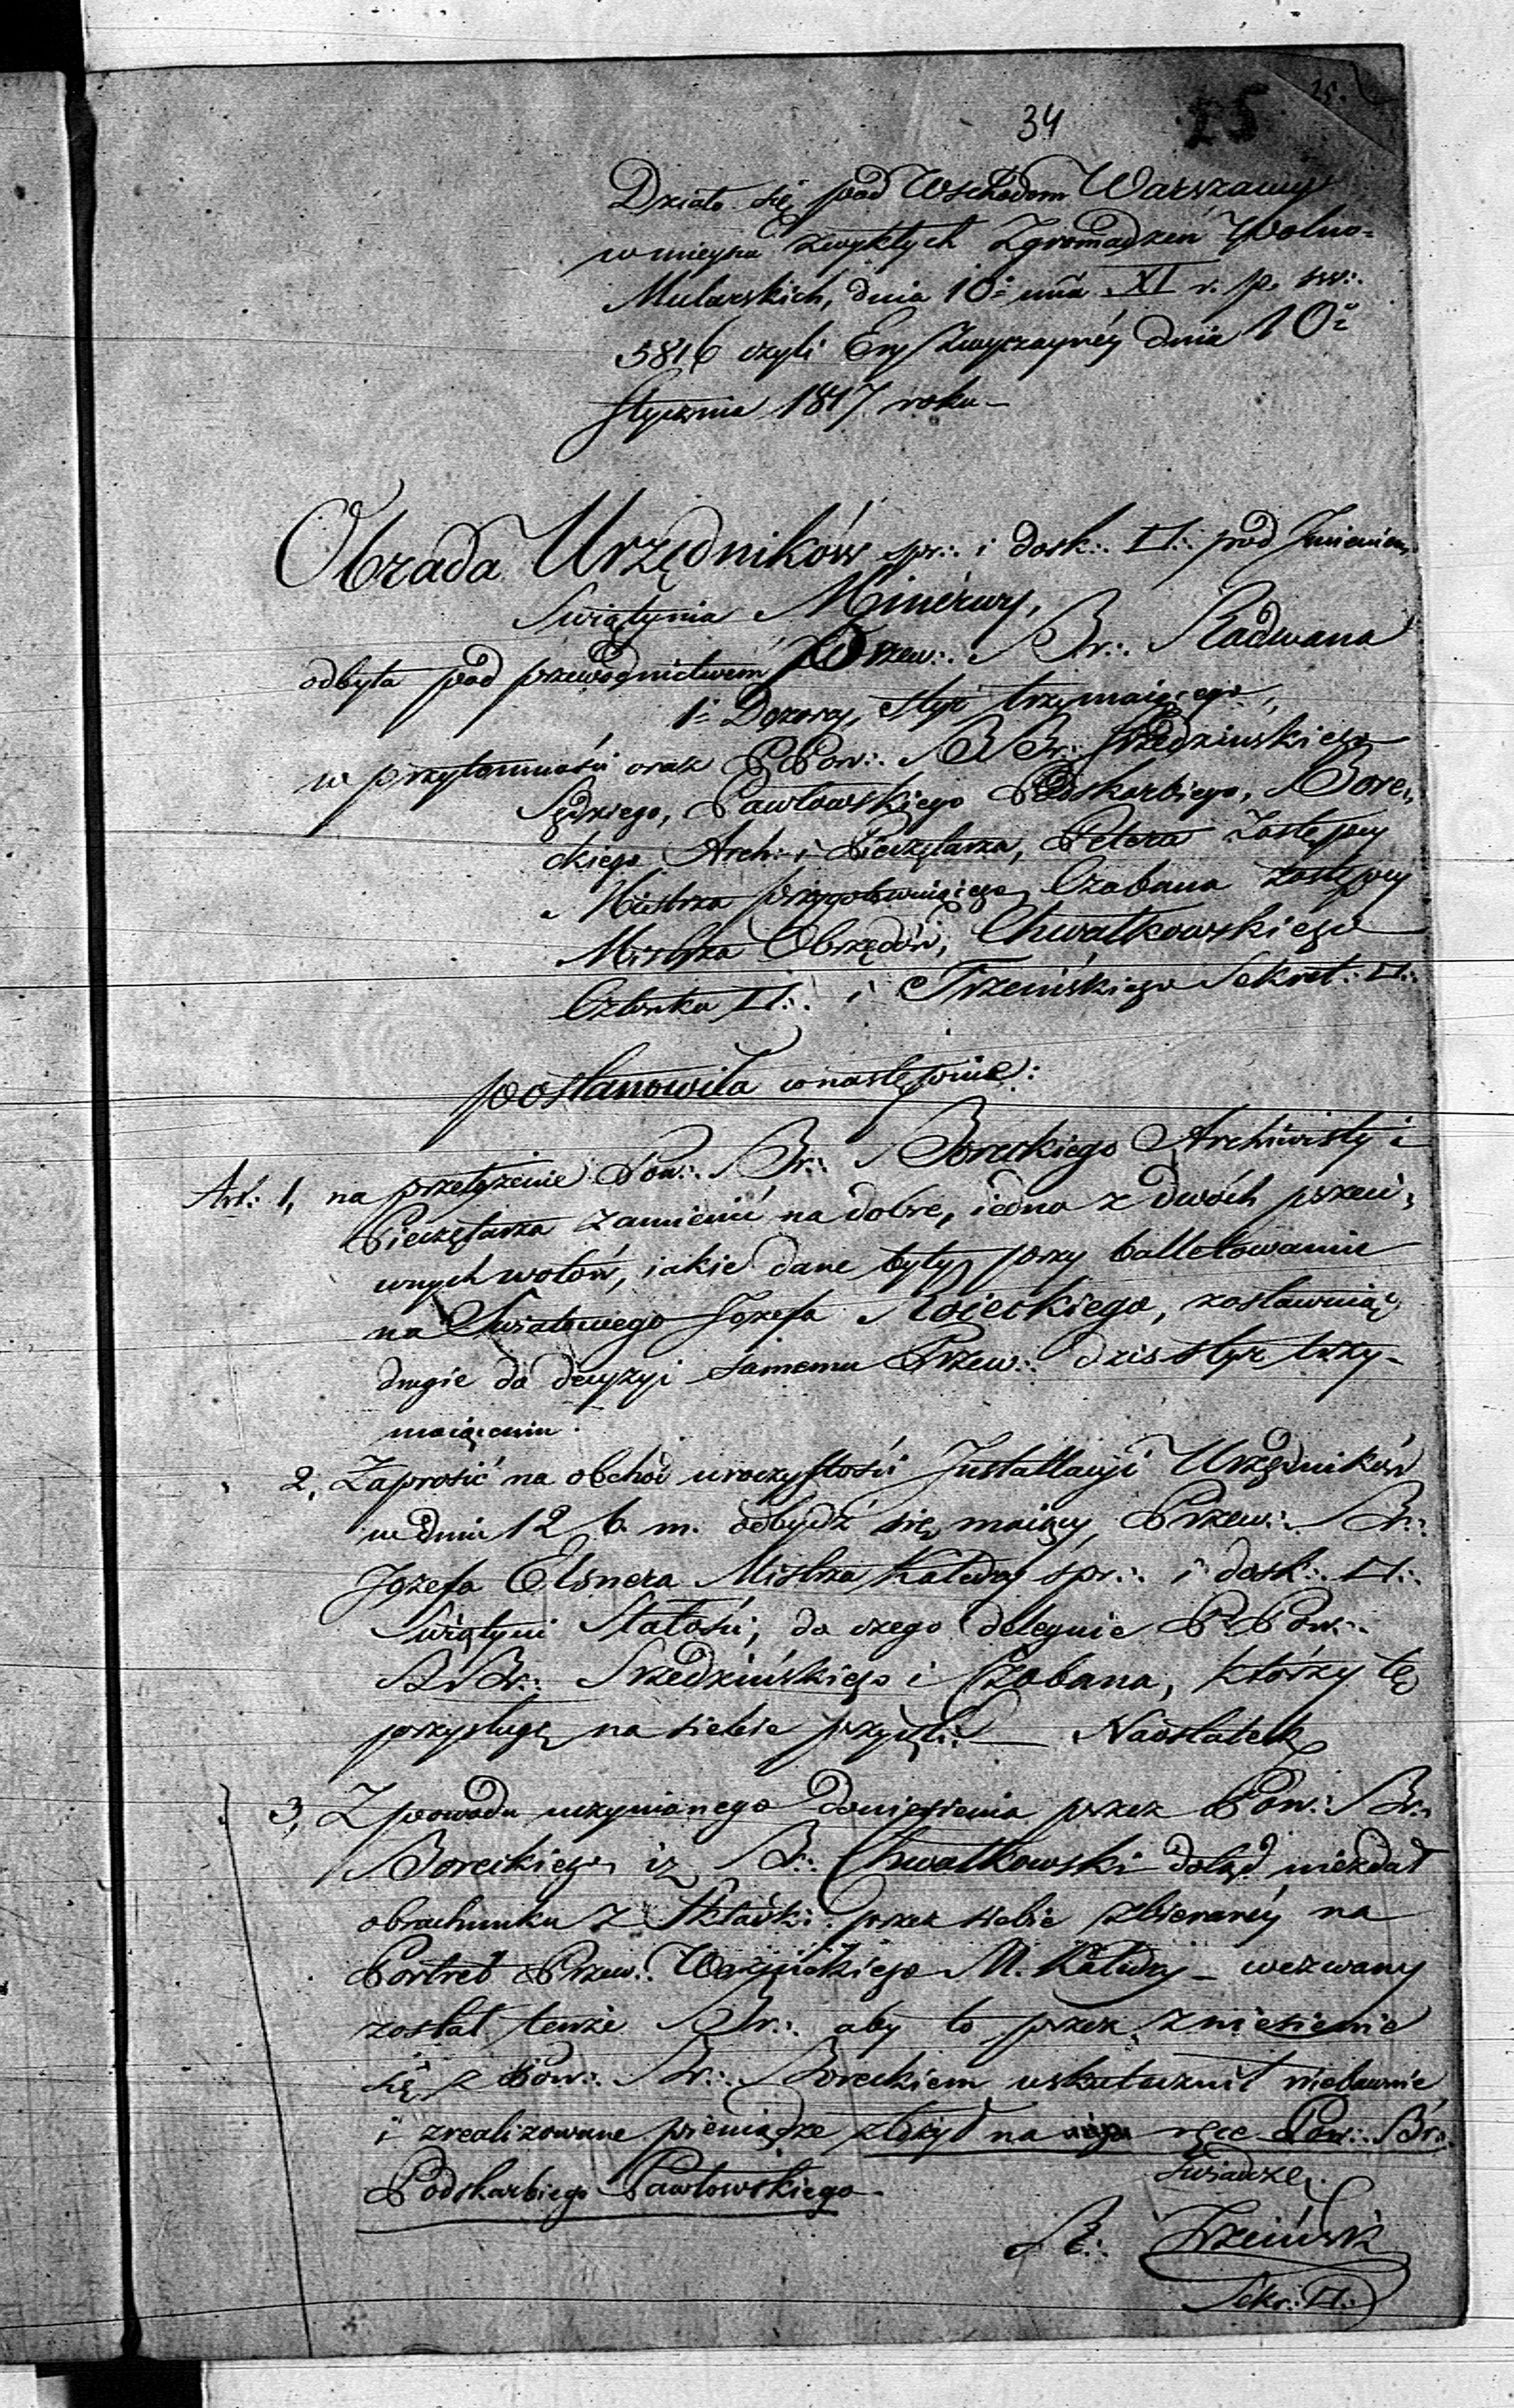 34 25 25.
Działo się pod Wschodem Warszawy
w mieyscu zwykłych Zgromadzeń Wolno=
Mularskich, dnia 10º mca XI r. p. sw∴
5816 czyli Ery Zwyczaynéy dnia 10º
Stycznia 1817 roku –
Obrada Urzędników spr∴ i dosk∴ □∴ pod Imieniem
Swiątynia Minerwy,
odbyta pod przewodnictwem Przew∴ Br∴ Radwana
1º Dozorcy, styr trzymaiącego,
w przytomności oraz PPow∴ BBr∴ Srzedzińskiego
Sędziego, Pawłowskiego Podskarbiego, Bore„
ckiego Arch: i Pieczętarza, Petera Zastępcy
Mistrza przygotowuiącego, Czabana zastępcy
Mistrza Obrzędów, Chwałkowskiego
Członka □∴ i Trzcińskiego Sekret: □∴
postanowiła wnastępnie:
Art: 1, na przełożenie Pow∴ Br∴ Boreckiego Archiwisty i
Pieczętarza zamienić na dobre, iedno z dwóch przeci„
wnych wotów, iakie dane były przy balletowaniu
na Swiatowego Józefa Ł zostawuiąc
drugie do decyzyi samemu Przew∴ dziś styr trzy-
maiącemu.
2, Zaprosić na obchód uroczystości Installacyi Urzędników
w dniu 12 b. m. odbydź się maiący, Przew∴ Br∴
Józefa Elsnera Mistrza Katedry spr∴ i dosk∴ □∴
Swiątyni Stałości, do czego deleguie PPow∴
BBr∴ Srzedzińskiego i Czabana, którzy tę
przysługę na siebie przyięli. — Naostatek
3, Z powodu uczynionego doniesienia przez Pow∴ Br∴
Boreckiego, iż Br∴ Chwałkowski dotąd niezdał
obrachunku z Składki przez siebie zbieranéy na
Portret Przew∴ M. Katedry – wezwany
został tenże Br∴ aby to przez zniesienie
się z Pow∴ Br∴ Boreckiem uskutecznił niebawnie
i zrealizowane pieniądze złożył na ręce Pow∴ Br∴
Podskarbiego Pawłowskiego.
Swiadczę.
Br∴ Trzcińsk
Sekr: □∴